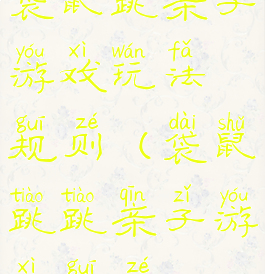 袋鼠跳亲子
yóu xì wán fǎ
游戏玩法
guī zé dài shǔ
规则（袋鼠
tiào tiào qīn zǐ yóu
跳跳亲子游
xì guī zé